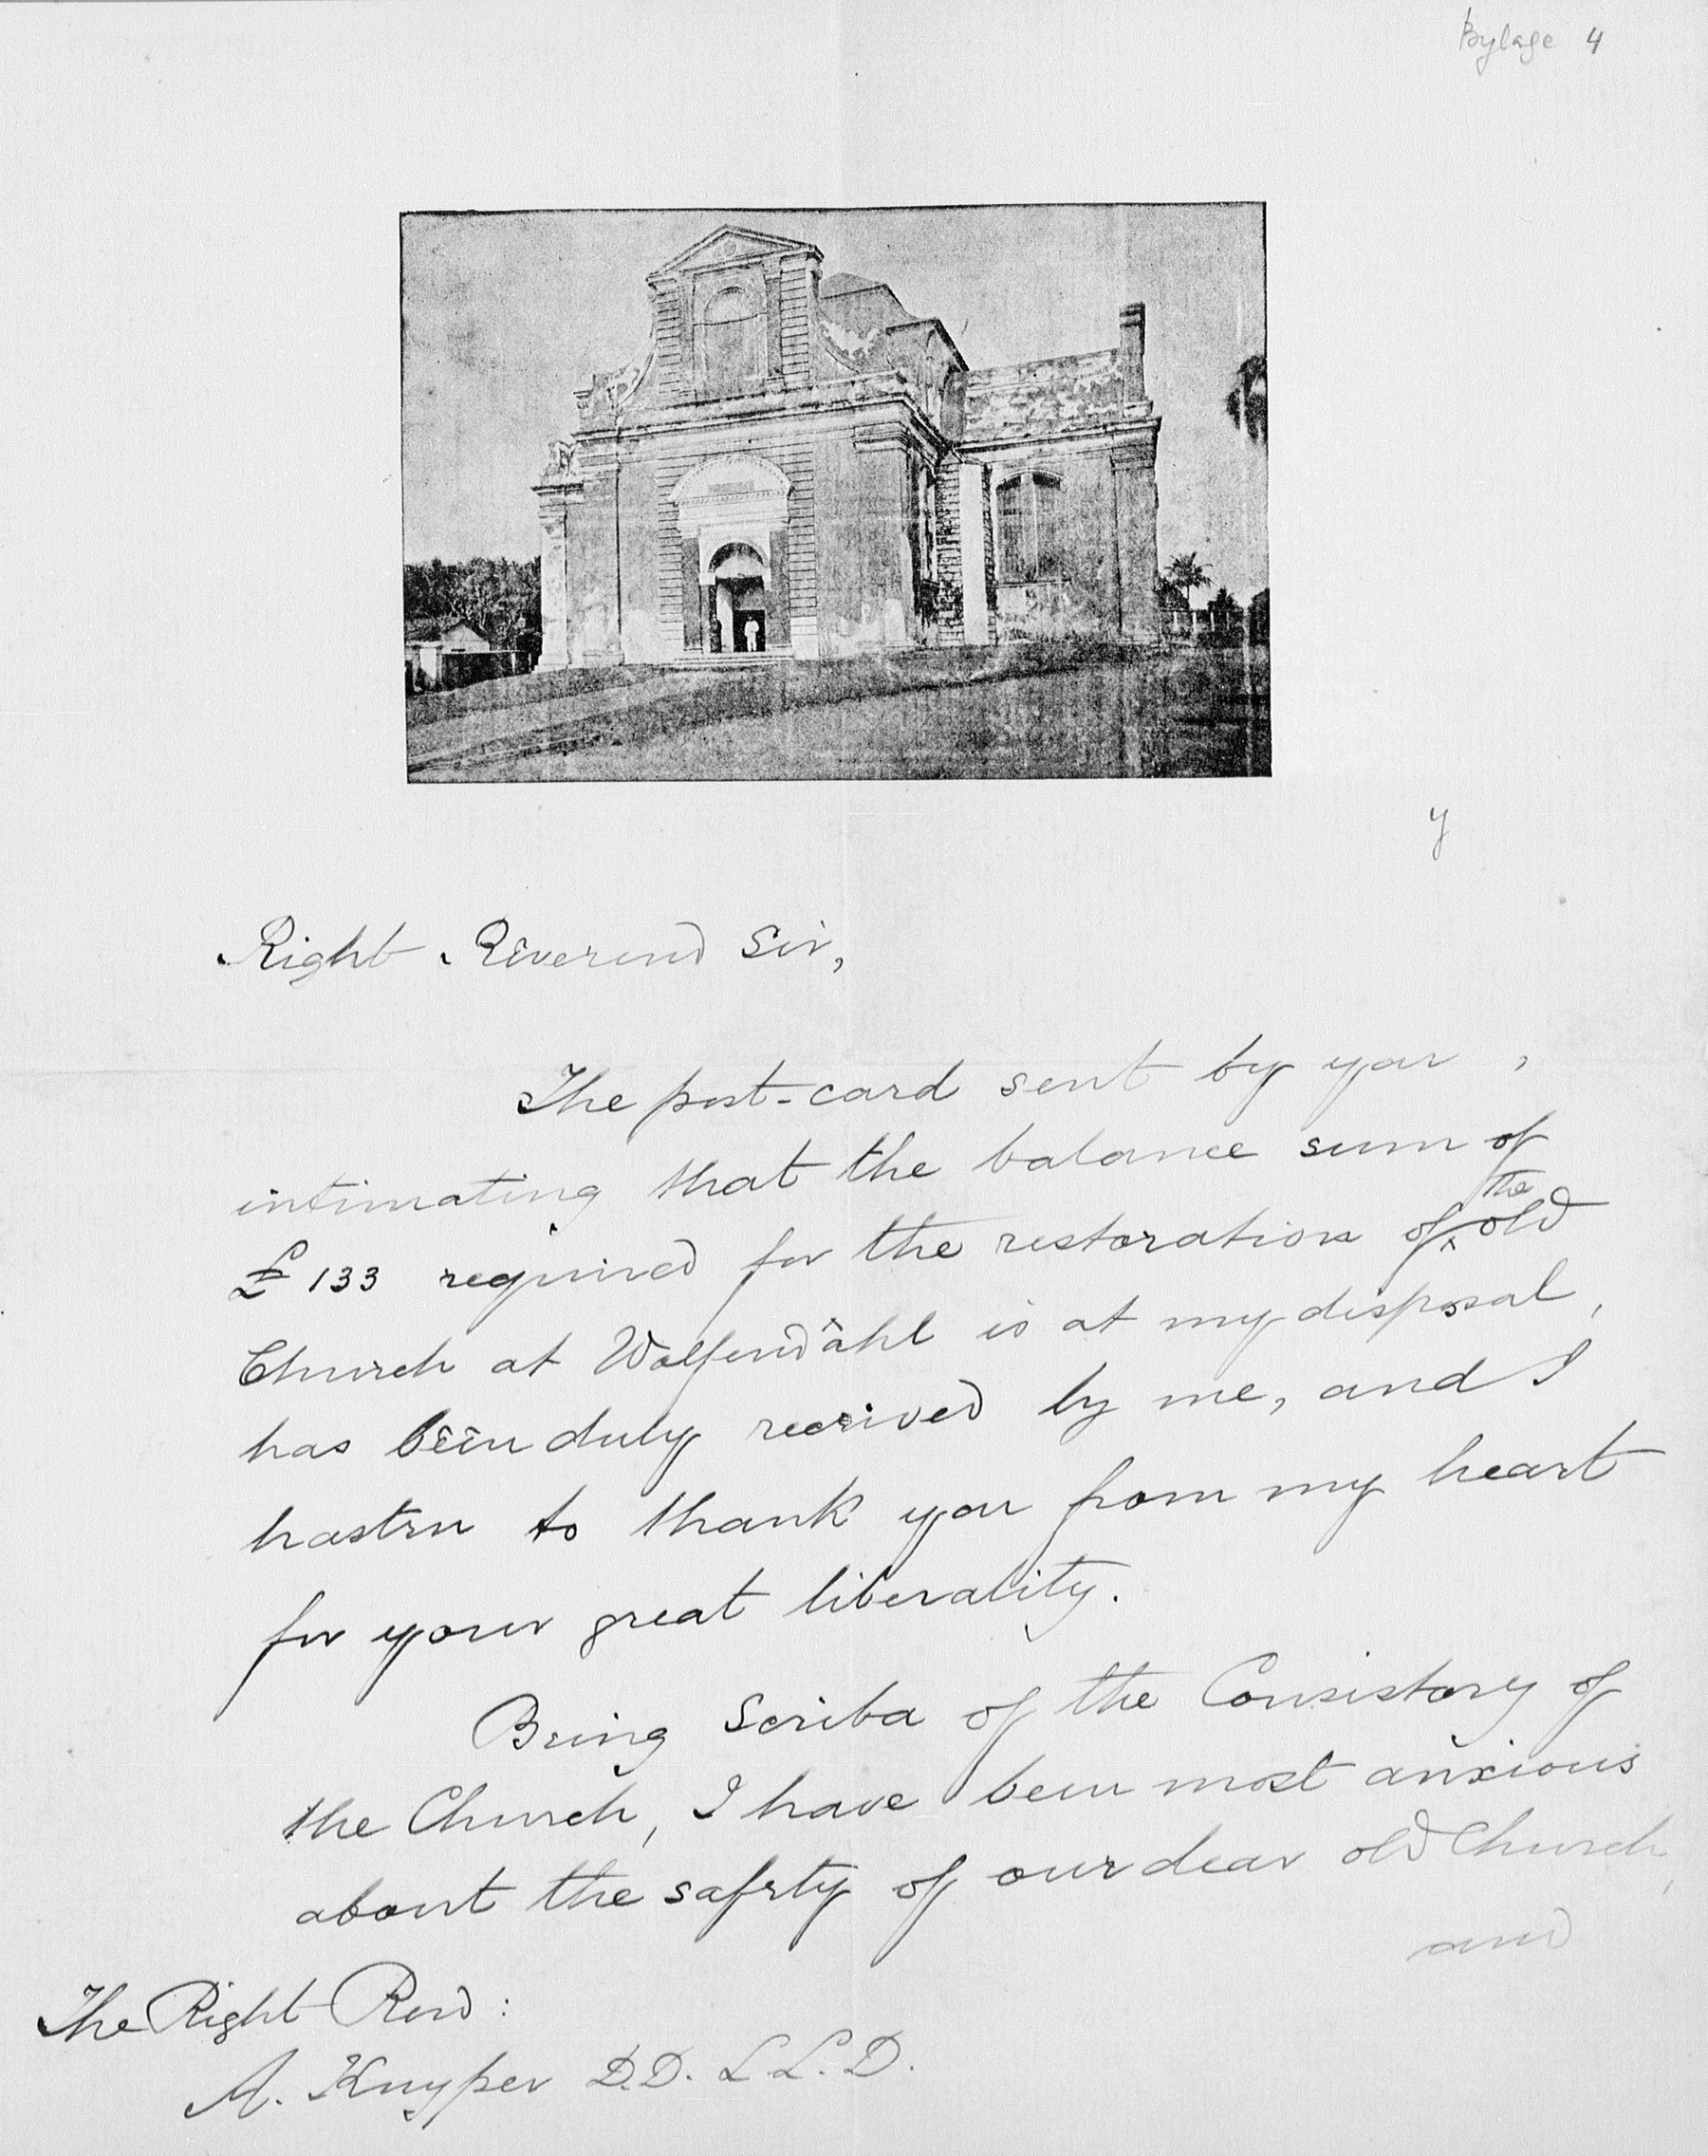 Bylage 4
y
Right Reverend Sir,
The post-card sent by you,
intimating that the balance sum of
£ 133 required for the restoration of the old
Church at Wolfendâhl is at my disposal,
has been duly received by me, and I
hasten to thank you from my heart
for your great liberality.
Being Scriba of the Consistory of
the Church, I have been most anxious
about the safety of our dear old Church,
and
The Right Revd:
A. Kuyper D.D. L.L.D.